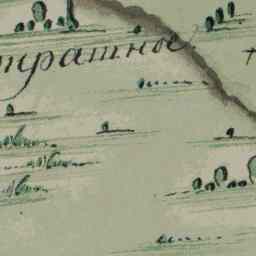 тратное